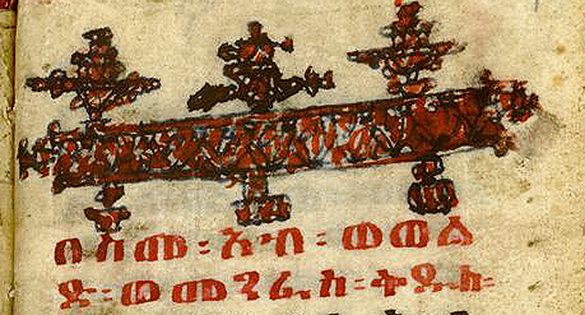 በስመ፡አብ፡ወወል
ድ፡ወመንፈስ፡ቅዱስ፡